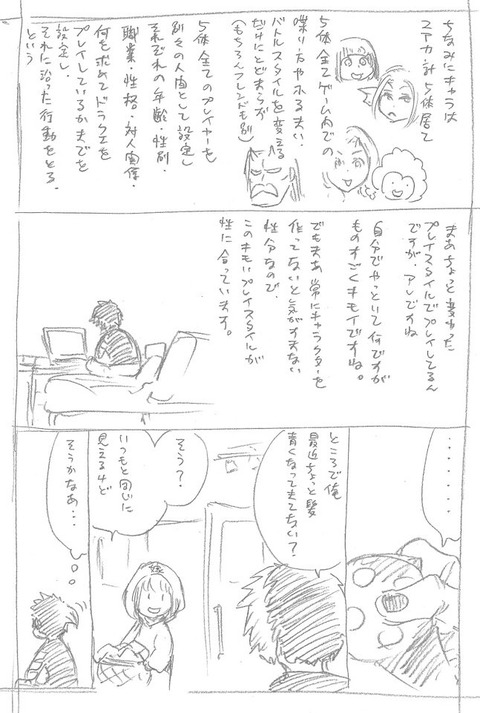 ちなみにキャラは
2アカ計5体居て
5体全てゲーム内での
喋り方やふるまい、
バトルスタイルを変える
だけにとどまらず
(もちろんフレンドも別)
5体全てのプレイヤーも
別々の人間として設定し
それぞれの年齢・性別・
職業・性格・対人関係・
何を求めてドラクエを
プレイしているかまでを
設定し、
それに沿った行動をとる、
という
まあちょっと変わった
プレイスタイルでプレイしてるん
ですが、アレですね
自分でやっといて何ですが
ものすごくキモイですね。
でもまあ常にキャラクターを
作ってないと気がすまない
性分なので、
このキモいプレイスタイルが
性に合っています。
・・・・・・・・
ところで俺
最近ちょっと髪
青くなってきてない?
そう?
いつもと同じに
見えるけど
嫁
そうかなあ・・・